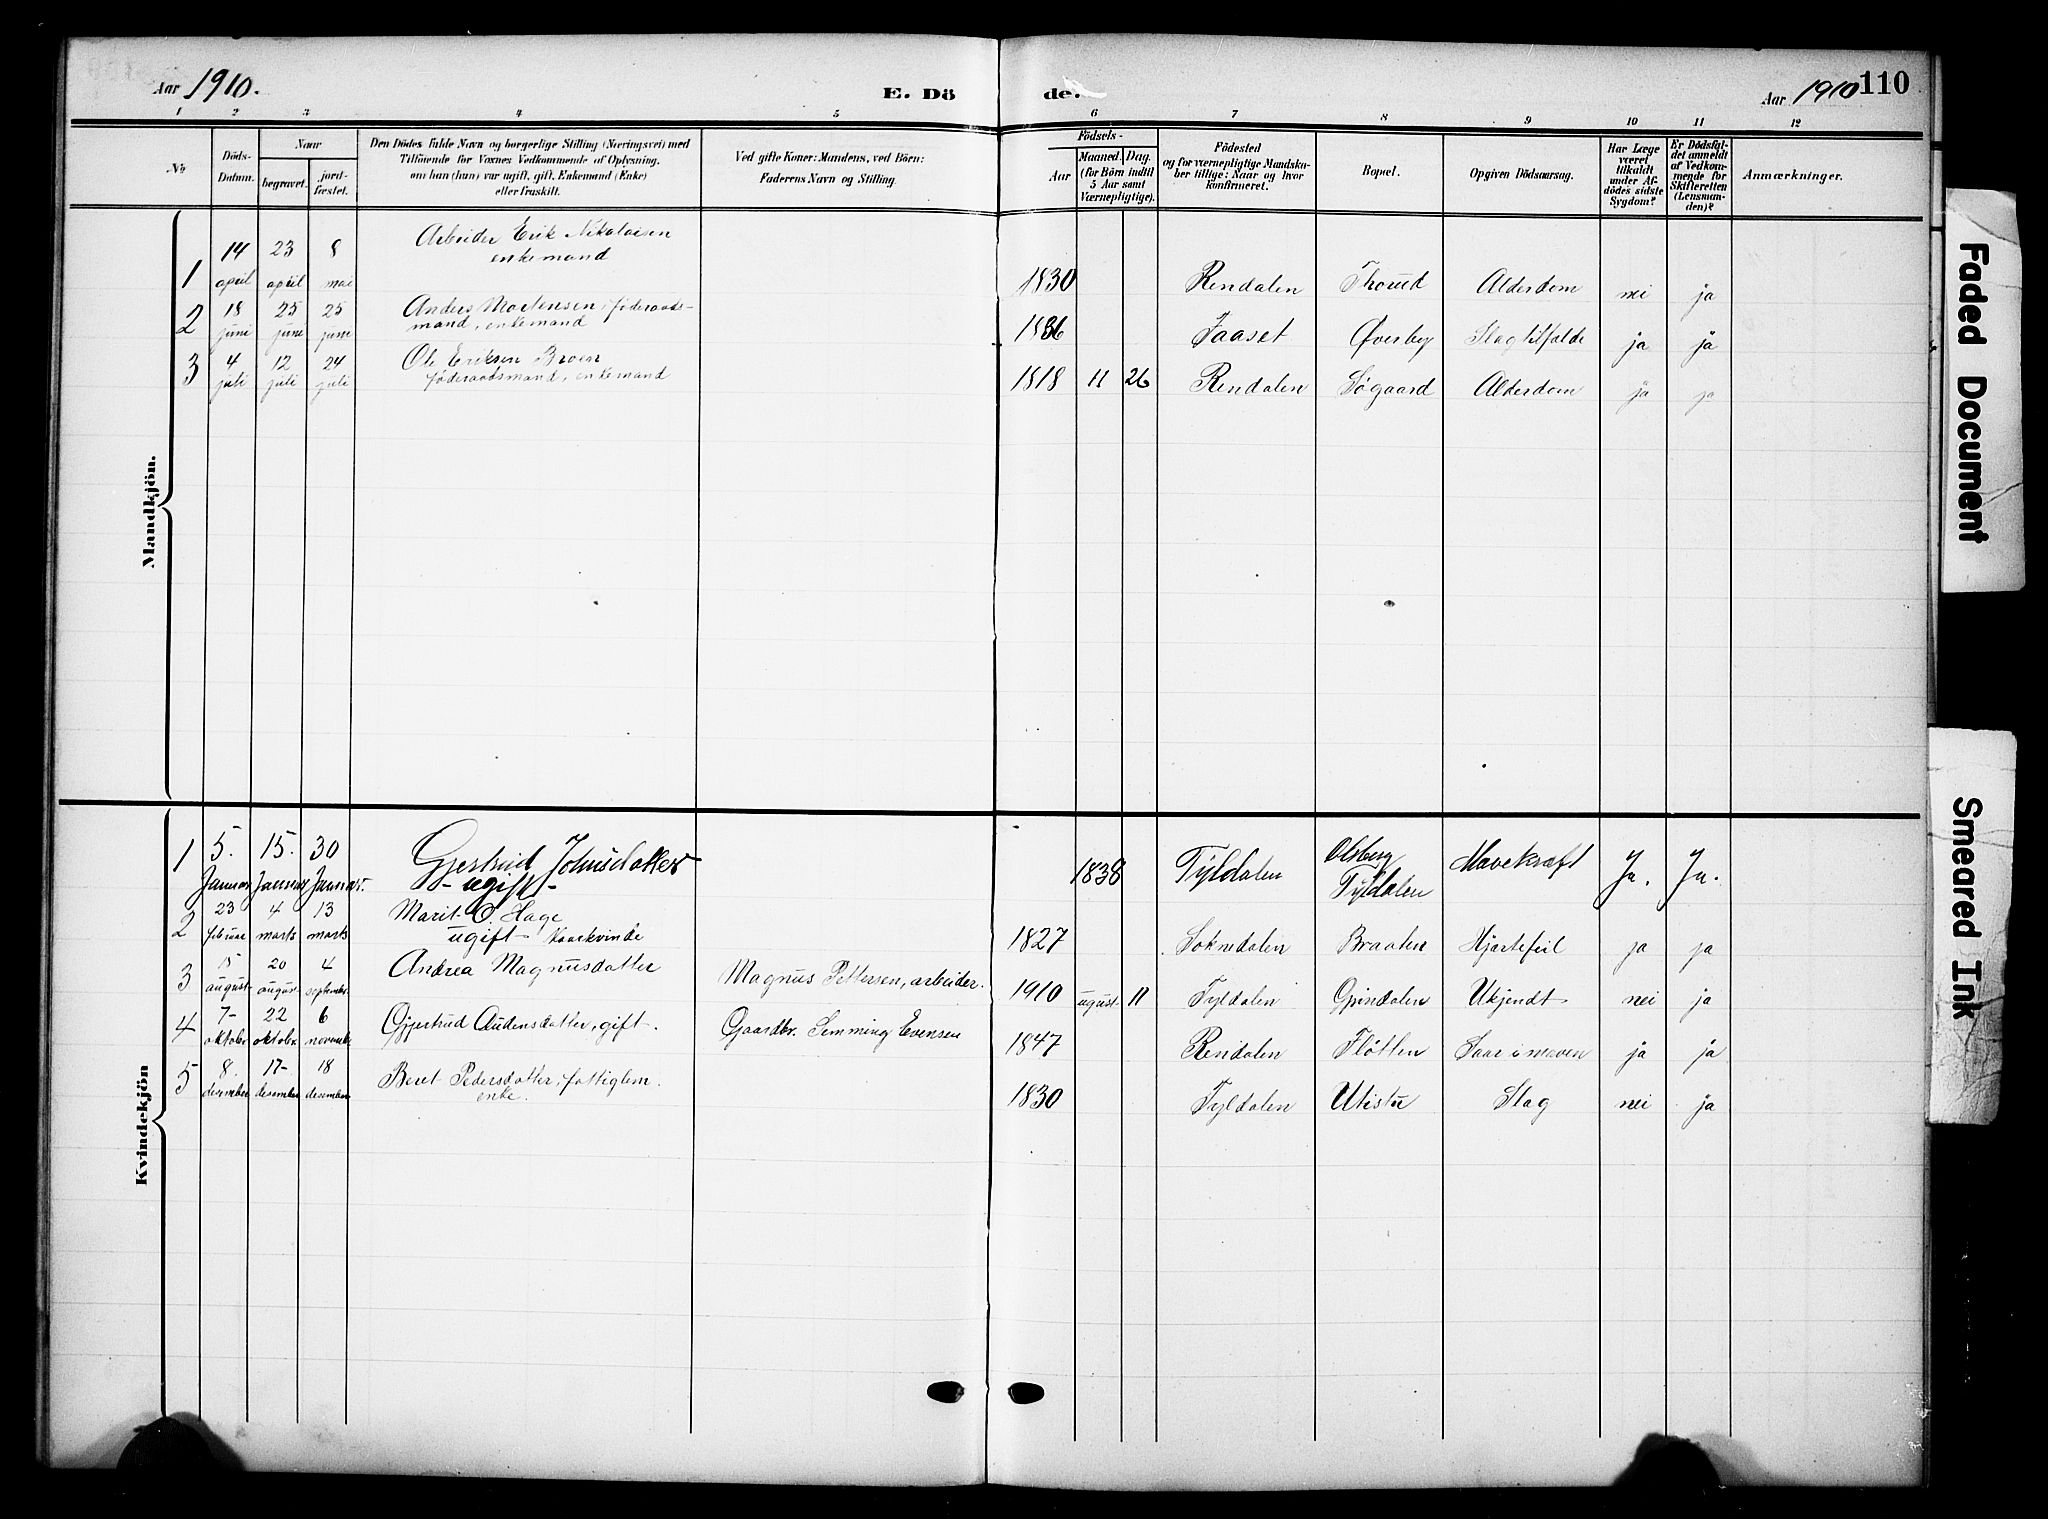 Aar 1910.
E. Dö de.
Aar 1910 110
1 2 3 4 5 6 7 8 9 10 11 12
No
Döds-Datum.
Naar
begravet.
jordfæstet.
Den Dödes fulde Navn og borgerlige Stilling (Næringsvei) med
Tilföiende for Voxnes Vedkommende af Oplysning,
om han (hun) var ugift, gift, Enkemand (Enke)
eller fraskilt.
Ved gifte Koner: Mandens, ved Börn:
Faderens Navn og Stilling.
Födsels-
Aar
Maaned. Dag.
(for Börn indtil
5 Aar samt
Værnepligtige).
Födested
og for værnepligtige Mandskaber tillige: Naar og hvor
konfirmeret.
Bopæl.
Opgiven Dödsaarsag.
Har Læge
været
tilkaldt
under Afdödes sidste
Sygdom?
Er Dödsfaldet anmeldt
af Vedkommende for
Skifteretten
(Lensmanden)?
Anmærkninger.
Mandkjön.
1 14 april 23 april 8 mai Arbeider Erik Nikolaisen enkemand 1830 Rendalen Thorud Alderdom nei ja
2 18 juni 25 juni 25 juni Anders Mortensen, føderaads-
mand, enkemand 1836 Faaset Øverby Slagtilfælde ja ja
3 4 juli 12 juli 24 juli Ole Eriksen Broen
føderaadsmand, enkemand 1818 11 26 Rendalen Søgaard Alderdom ja ja
Kvindekjön
1 5. Januar 15. Januar 30 Januar. Gjertrud Johnsdatter
- ugift - 1838 Tyldalen Olsberg Tyldalen Mavekræft Ja. Ja.
2 23 februar 4 marts 13 marts Marit O. Hage
ugift - Kaarkvinde 1827 Soknedalen Braaten Hjertefeil ja ja
3 15 august 20 august 4 september Andrea Magnusdatter Magnus Pettersen, arbeider. 1910 august 11 Tyldalen Grindalen Ukjendt nei ja
4 7 oktober 22 oktober 6 november Gjertrud Audensdatter, gift. Gaardbr. Semming Evensen 1847 Rendalen Fløtten Saar i maven ja ja
5 8. desember 17 desember 18 desember Beret Pedersdatter, fattiglem.
enke. 1830 Tyldalen Utistu Slag nei ja
Faded Document
Smeared Ink